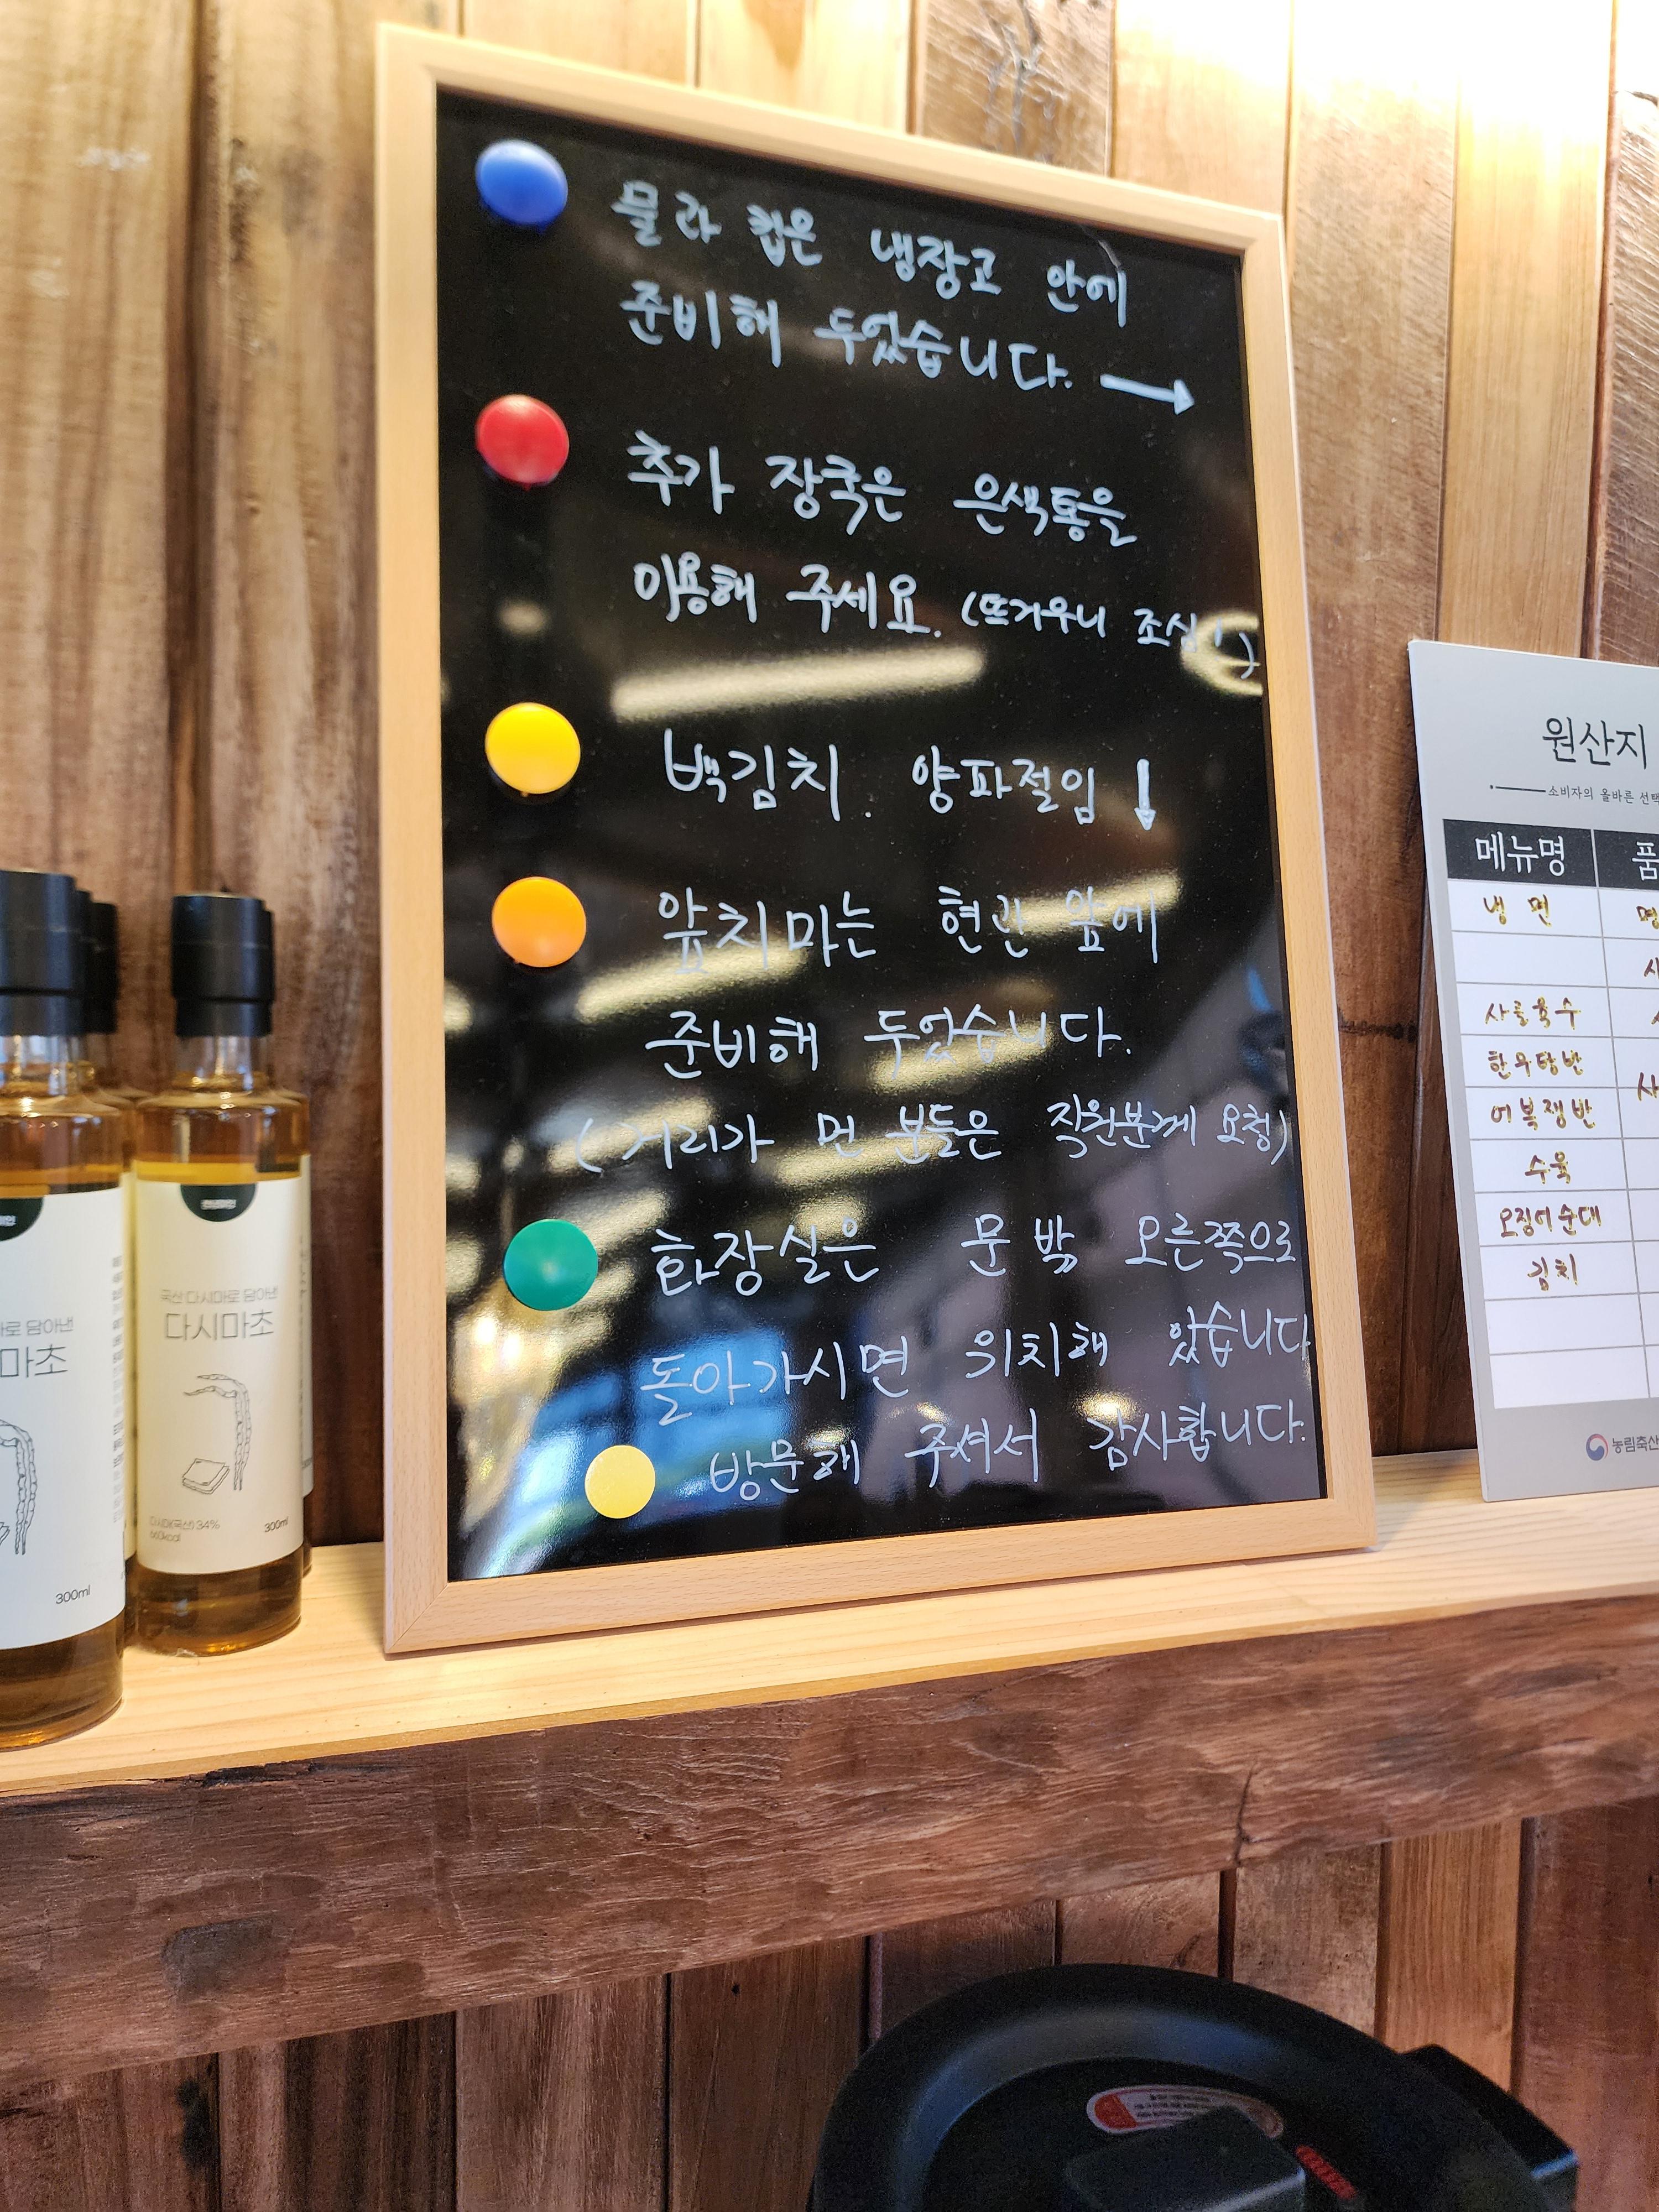 물과 컵은 냉장고 안에
준비해 두었습니다. →
추가 장국은 은색통을
이용해 주세요. (뜨거우니 조심!)
백김치. 양파절임 ↓
앞치마는 현관 앞에
준비해 두었습니다.
(거리가 먼 분들은 직원분께 요청)
화장실은 문 밖 오른쪽으로
돌아가시면 위치해 있습니다
방문해 주셔서 감사합니다.
원산지
소비자의 올바른 선택
메뉴명 품
냉면
사골육수
한우탕반
어복쟁반
수육
오징어순대
김치
농림축산
국산 다시마로 담아낸
다시마초
다시마(국산) 34%
660kcal
300ml
로 담아낸
마초
300ml